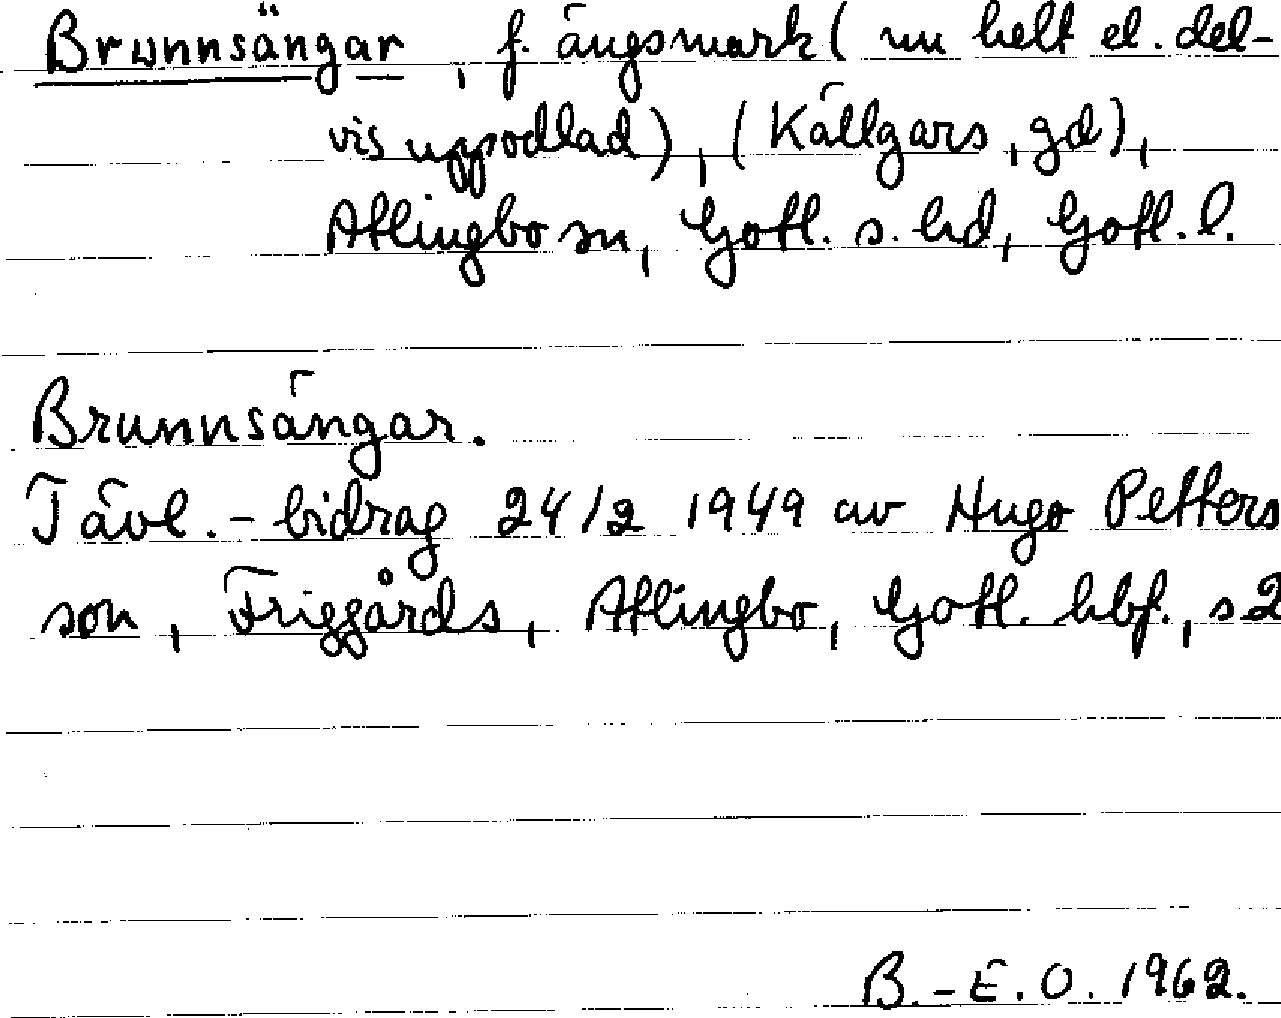 Brunnsängar, f. ängsmark (nu helt el. del-
vis uppodlad), (Källgars, gd),
Atlingbo sn, Gotl. s. hd, Gotl. l.
Brunnsängar.
Tävl.-bidrag 24/2 1949 av Hugo Petters
son, Friggårds, Atlingbo, Gotl. hbf., s 2
B.-E. O. 1962.